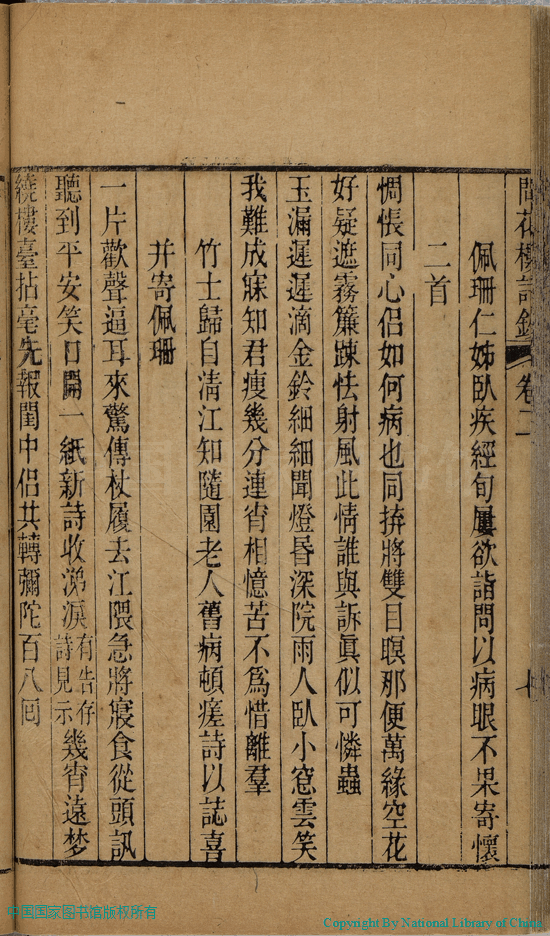 間花樓詩鈔 卷二
佩珊仁姊臥疾經旬屢欲詣問以病眼不果寄懷
二首
惆悵同心侶如何病也同拚將雙目瞑那便萬緣空花
好疑遮霧簾踈怯射風此情誰與訴眞似可憐蟲
玉漏遲遲滴金鈴細細聞燈昏深院雨人臥小窓雲笑
我難成寐知君瘦幾分連宵相憶苦不爲惜離羣
竹士歸自淸江知隨園老人舊病頓瘥詩以誌喜
并寄佩珊
一片歡聲逼耳來驚傳杖履去江隈急將寢食從頭訊
聽到平安笑口開一紙新詩收涕淚有告存詩見示幾宵遠梦
繞樓臺拈毫先報閨中侶共轉彌陀百八回
中国国家图书馆版权所有
Copyright By National Library of China